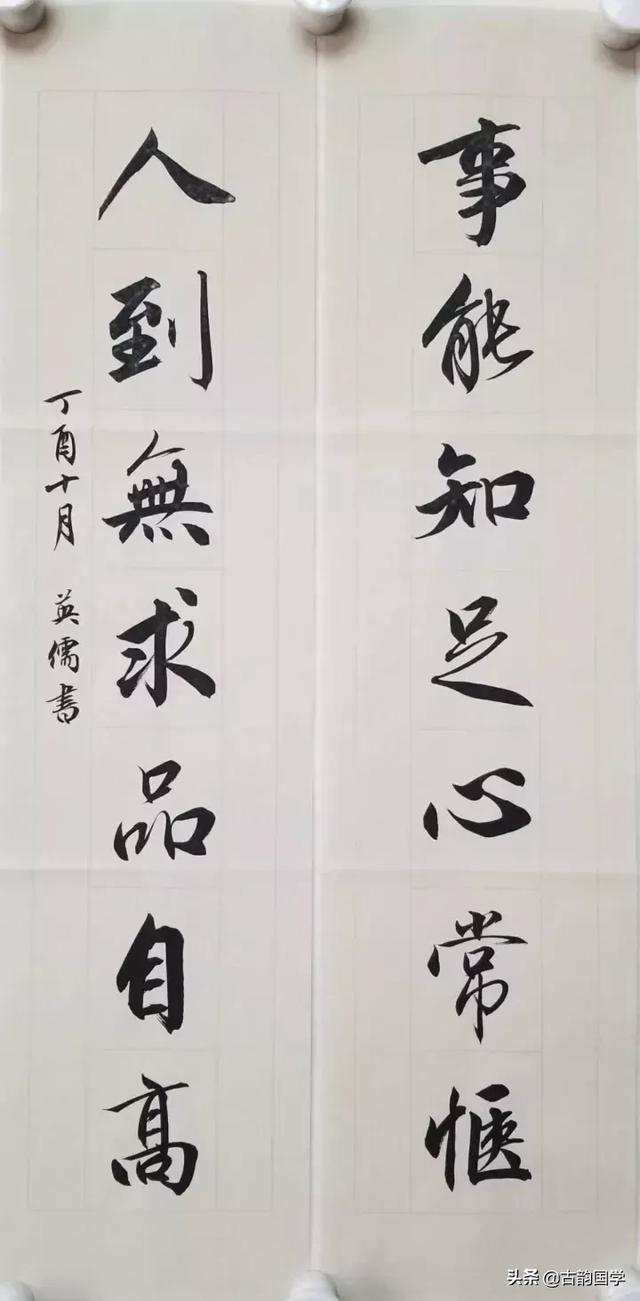 事能知足心常惬
人到無求品自高
丁酉十月 英儒書
头条 @古韵国学